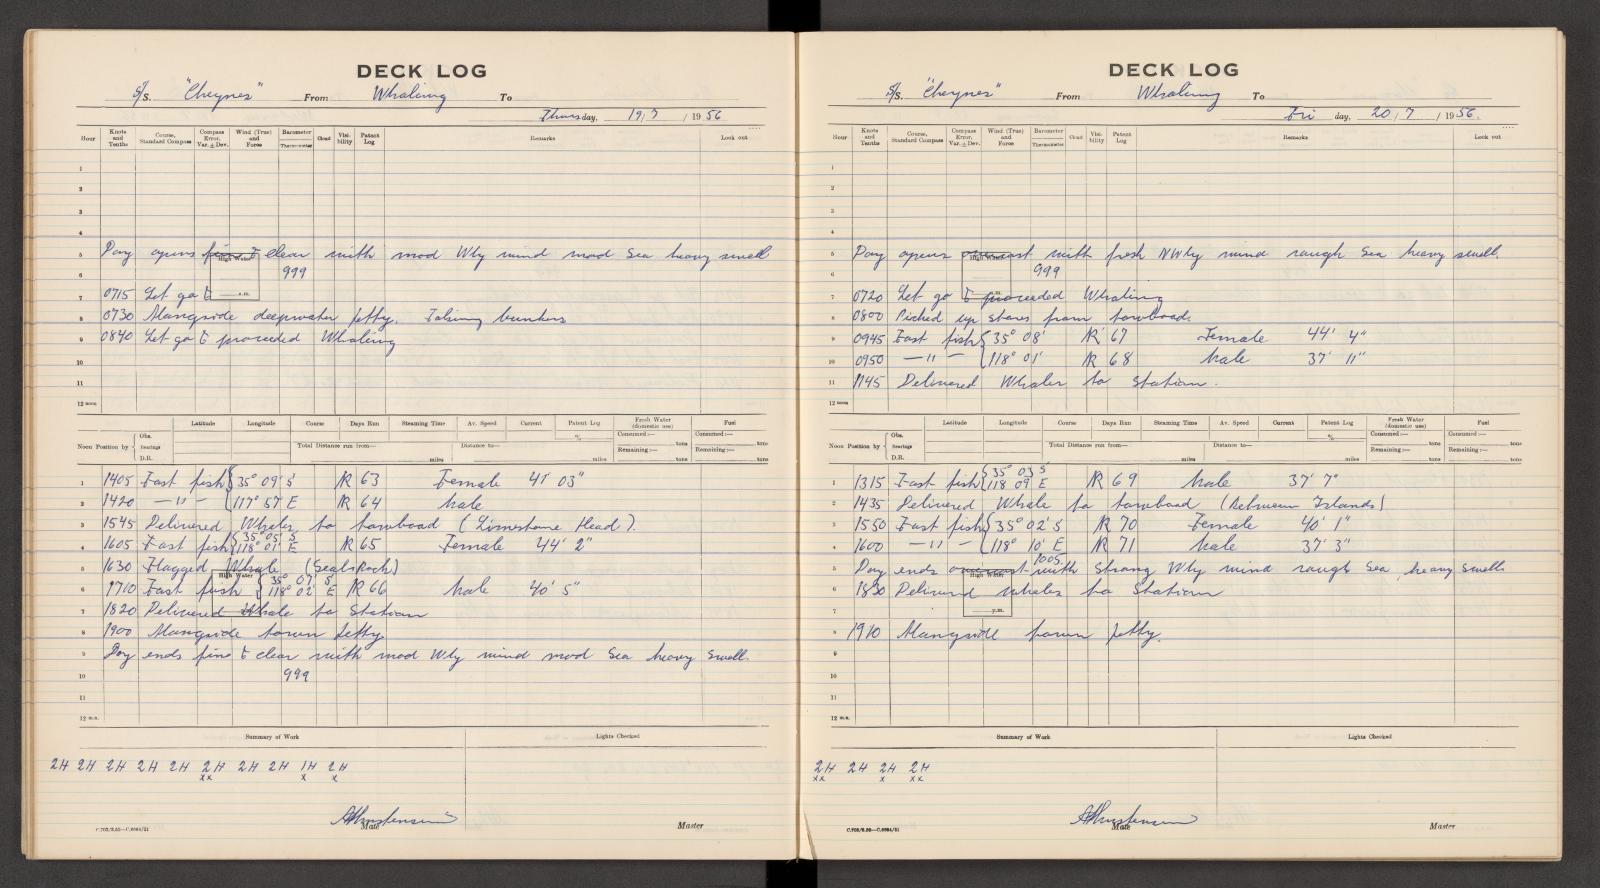 DECK LOG
S/S. "Cheynes" From Whaling To
Thursday, 19/7 / 1956
Hour Knots and Tenths Course, Standard Compass Compass Error, Var. ± Dev. Wind (True) and Force Barometer Thermometer Cloud Visibility Patent Log Remarks Look out
1
2
3
4
5 Day opens fine & clear with mod Wly wind mod Sea heavy swell
High Water
6 999
7 0715 Let go &
a.m.
8 0730 Alongside deepwater Jetty. Taking bunkers
9 0840 Let go & proceeded Whaling
10
11
12 noon
Latitude Longitude Course Days Run Steaming Time Av. Speed Current Patent Log Fresh Water (domestic use) Fuel
% Consumed:— tons Consumed:— tons
Noon Position by Obs. Bearings D.R. Total Distance run from— miles Distance to— miles Remaining:— tons Remaining:— tons
1 1405 Fast fish { 35° 09' S R 63 Female 41' 03"
2 1420 —"— { 117° 57 E R 64 Male
3 1545 Delivered Whales to towboad (Limestone Head).
4 1605 Fast fish { 35° 05' S 118° 01' E R 65 Female 44' 2"
5 1630 Flagged Whale (Seals Rock)
High Water
6 1710 Fast fish { 35° 07' S 118° 02' E R 66 Male 40' 5"
7 1820 Delivered Whale to Station
8 1900 Alongside town Jetty.
9 Day ends fine & clear with mod Wly wind mod Sea heavy swell.
10 999
11
12 m.n.
Summary of Work Lights Checked
2H 2H 2H 2H 2H 2H 2H 2H 1H 2H
xx x x
Mate Master
C.702/2.50—C.6064/51
DECK LOG
S/S. "Cheynes" From Whaling To
Fri day, 20/7 / 1956.
Hour Knots and Tenths Course, Standard Compass Compass Error, Var. ± Dev. Wind (True) and Force Barometer Thermometer Cloud Visibility Patent Log Remarks Look out
1
2
3
4
5 Day opens overcast with fresh NWly wind rough Sea heavy swell.
High Water
6 999
7 0720 Let go & proceeded Whaling
a.m.
8 0800 Picked up stores from towboad.
9 0945 Fast fish { 35° 08' R 67 Female 44' 4"
10 0950 —"— { 118° 01' R 68 Male 37' 11"
11 1145 Delivered Whales to station.
12 noon
Latitude Longitude Course Days Run Steaming Time Av. Speed Current Patent Log Fresh Water (domestic use) Fuel
% Consumed:— tons Consumed:— tons
Noon Position by Obs. Bearings D.R. Total Distance run from— miles Distance to— miles Remaining:— tons Remaining:— tons
1 1315 Fast fish { 35° 03 S 118 09 E R 69 Male 37' 7"
2 1435 Delivered Whale to towboad (Between Islands)
3 1550 Fast fish { 35° 02' S R 70 Female 40' 1"
4 1600 —"— { 118° 10' E R 71 Male 37' 3"
1005.
5 Day ends overcast with strong Wly wind rough Sea, heavy swell
High Water
6 1830 Delivered whales to Station
7
p.m.
8 1910 Alongside town Jetty.
9
10
11
12 m.n.
Summary of Work Lights Checked
2H 2H 2H 2H
xx x xx
Mate Master
C.702/2.50—C.6064/51